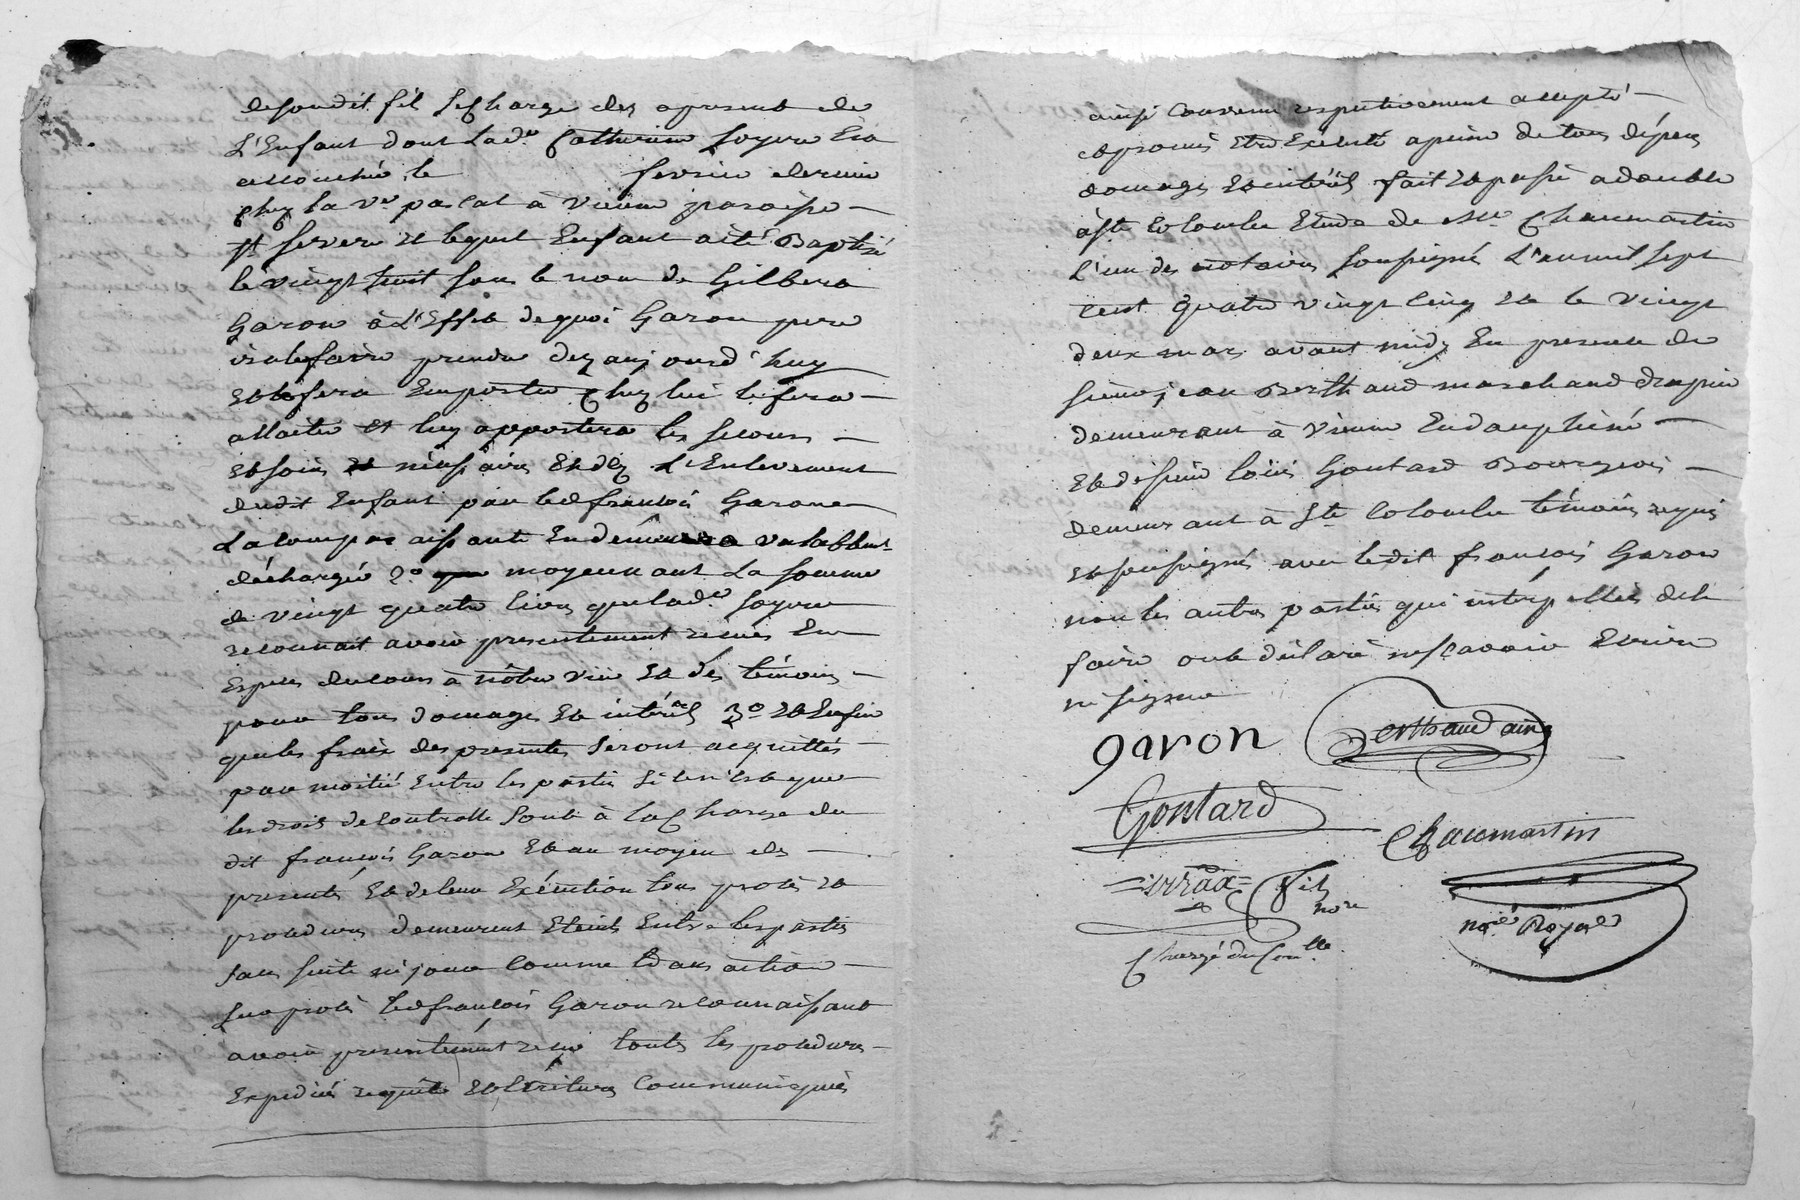 desondit fil se Charge des apresent de
L'Enfant dont Lad.e Catherine Soyere Era
accouchée le fevrier dernier
Chez la Ve pascal à vienne paroisse
St severe et lequel Enfant a été Baptisé
le vingt huit sous le nom de Gilbert
Garon à L'Effet de quoi Garon pere
ira le faire prendre dez aujourd'huy
et le fera Emporter Chez lui le fera
allaiter et luy apportera les secours
et soins necessaires Et dez L'Enlevement
dudit Enfant par led françois Garon
La comparaissante En demeurera valablemt
déchargée 2o moyennant La somme
de vingt quatre livres que lad.e Soyere
reconnait avoir presentement reçues En
Especes de cours à nôtre vüe et des témoins
pour tous domages et intérêts 3o et Enfin
que les frais des presentes seront acquittés
par moitié Entre les parties si ce n'est que
les droits de controlle sont à la Charge du
dit françois Garon et au moyen des
presentes et de leur Exécution tous procès et
procedures demeurent Eteints Entre les parties
sans suite ni jour comme transaction
sur procès led françois Garon reconnaissant
avoir presentement reçu toutes les procedures
Expediées requêtes et Ecritures Communiquées
ainsi convenu respectivement accepté
et promis Etre Exécuté a peine de tous dépens
domages et intérêts fait et passé a double
à ste Colombe Etude de Me Chaumartin
L'un des notaires soussigné L'an mil sept
cent quatre vingt cinq et le vingt
deux mars avant midy En presence de
sieur jean Berthaud marchand drapier
demeurant à vienne En dauphiné
et de sieur loüis Goutard Bourgeois
demeurant à Ste Colombe témoins requis
et soussignés avec ledit françois Garon
non les autres parties qui interpellées de le
faire ont déclaré ne sçavoir Ecrire
ni signer
garon Berthaud ainé
Goutard
Chaumartin
fils
nore
nore Royal
Chargé du Conlle.